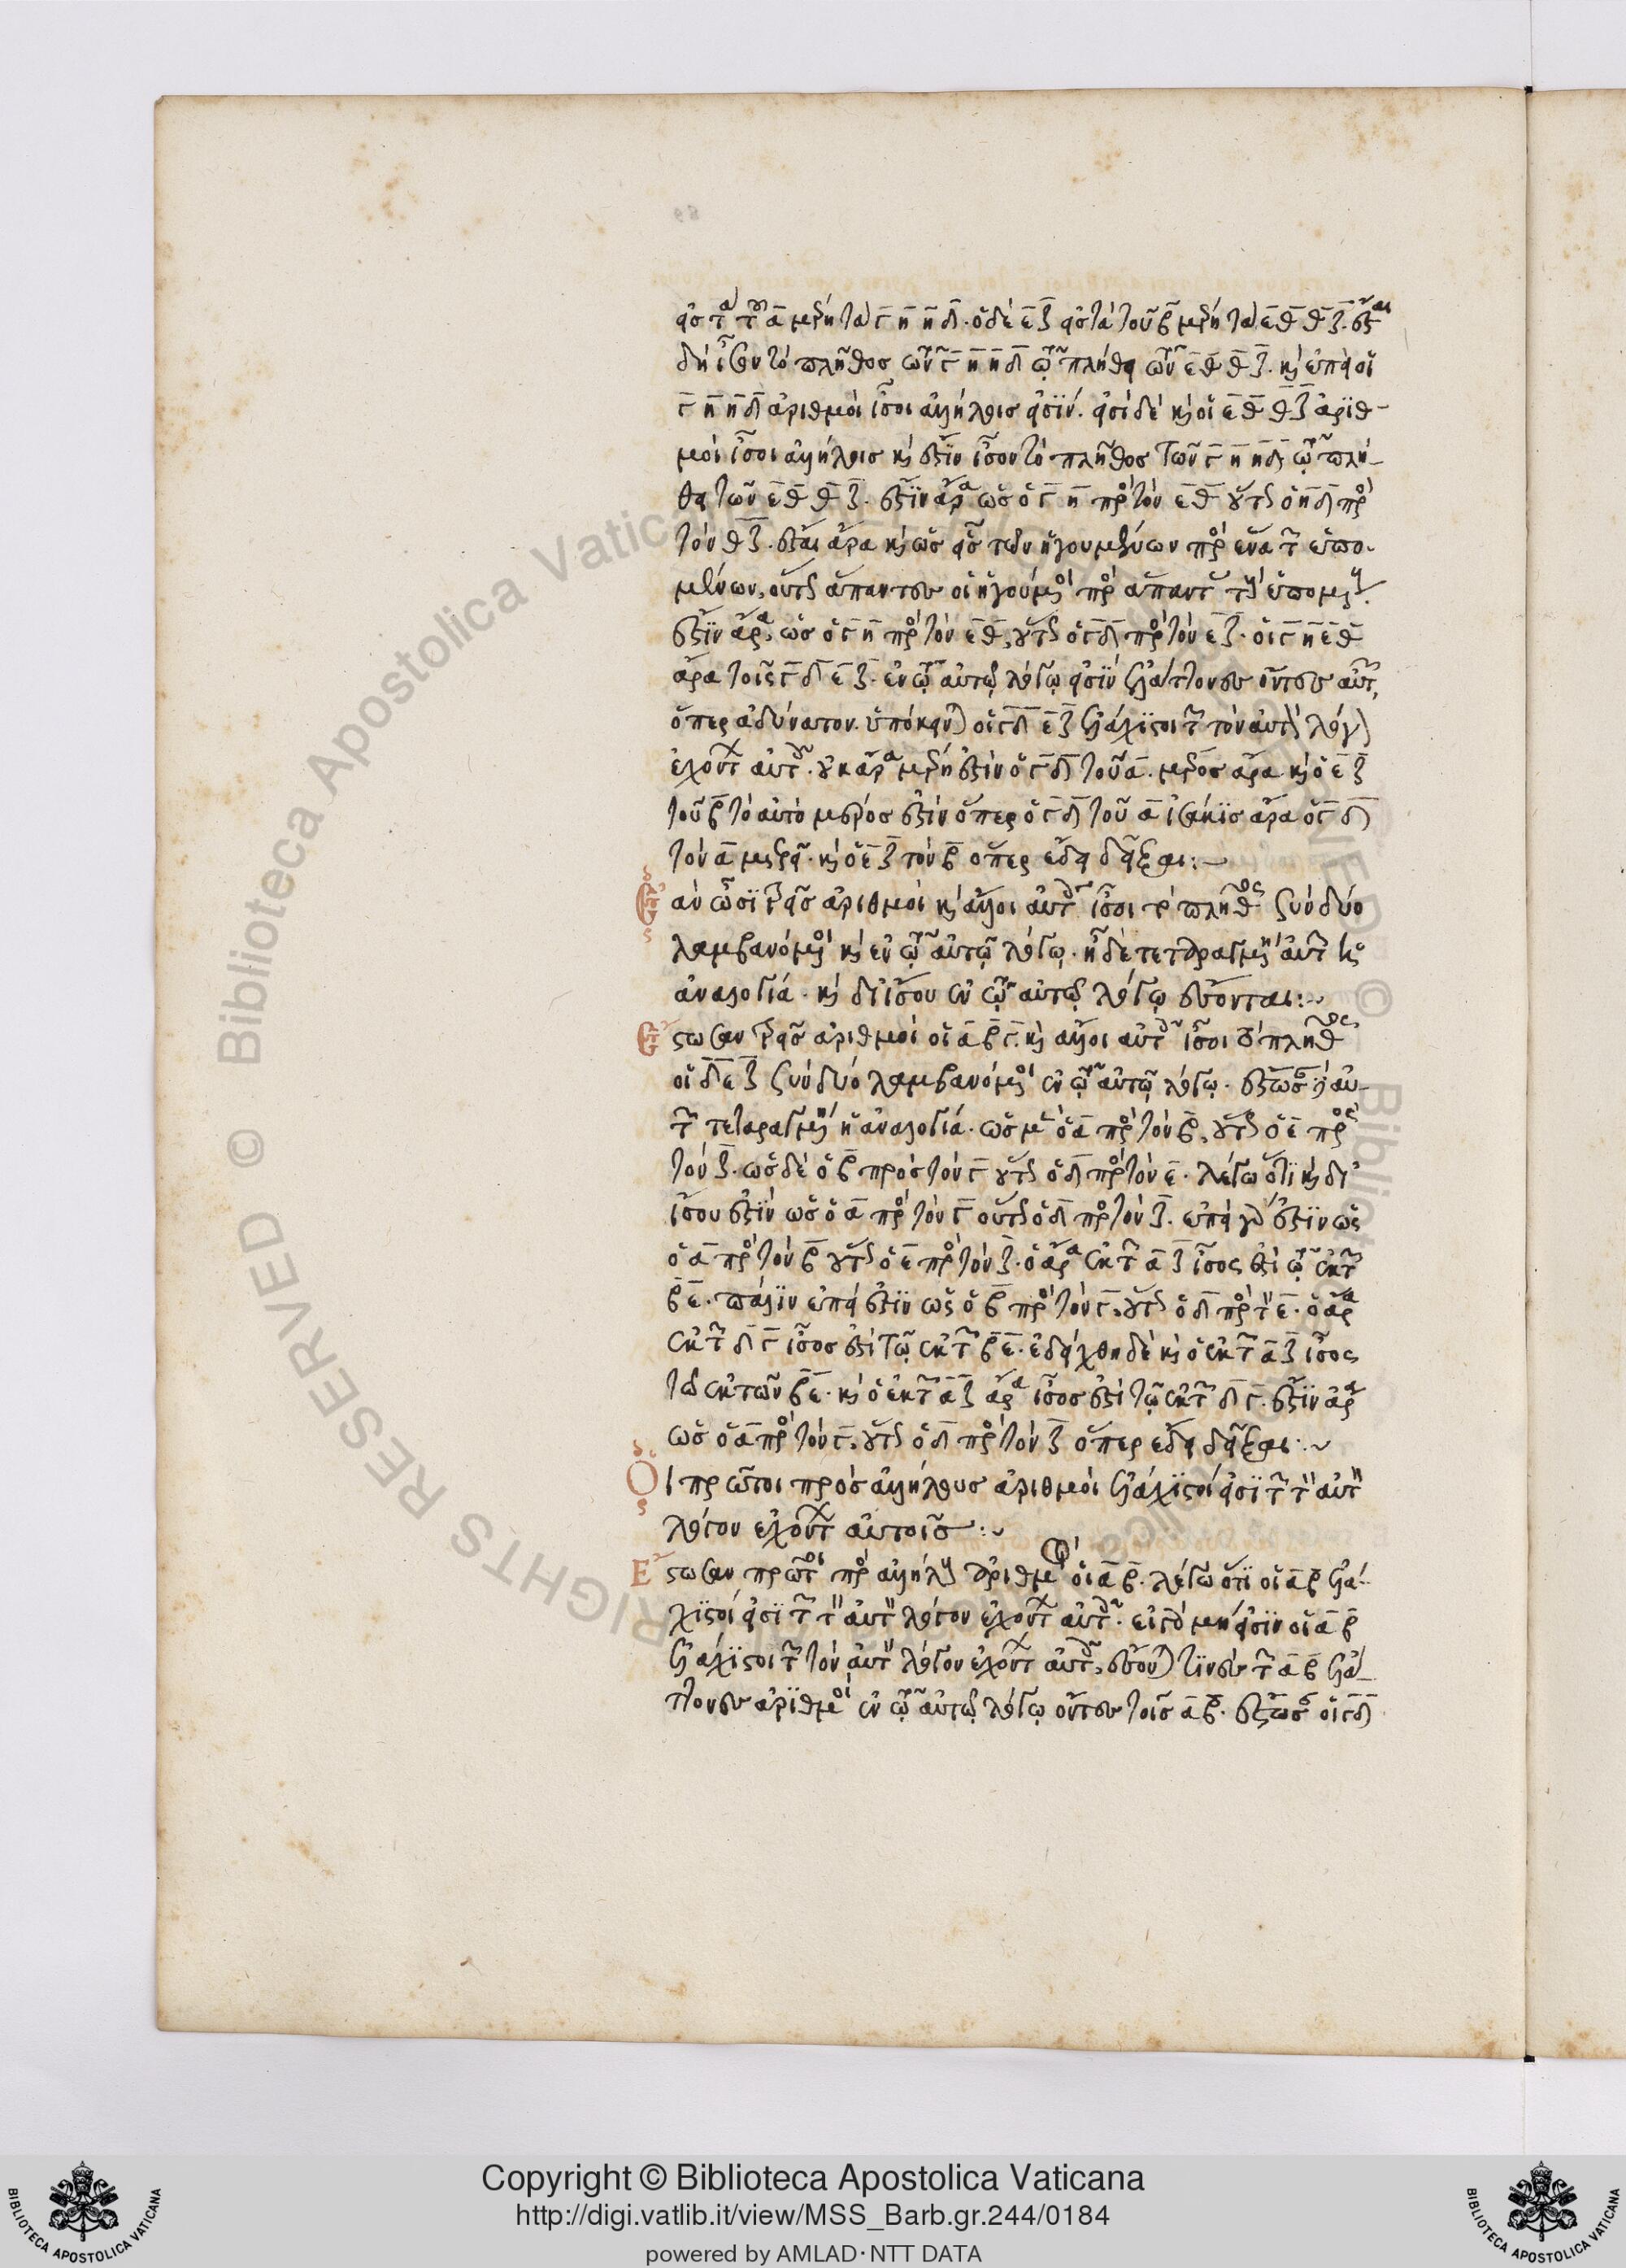 εἰς τὰ τοῦ α μέρη τὰ γη ηδ. ὁ δὲ εζ εἰς τὰ τοῦ β μέρη τὰ εθ θζ. ἔσται
δὴ ἴσον τὸ πλῆθος τῶν γη ηδ τῷ πλήθει τῶν εθ θζ. καὶ ἐπεὶ οἱ
γη ηδ ἀριθμοὶ ἴσοι ἀλλήλοις εἰσίν. εἰσὶ δὲ καὶ οἱ εθ θζ ἀριθ-
μοὶ ἴσοι ἀλλήλοις καὶ ἔστιν ἴσον τὸ πλῆθος τῶν γη ηδ τῷ πλή-
θει τῶν εθ θζ. ἔστιν ἄρα ὡς ὁ γη πρὸς τὸν εθ οὕτως ὁ ηδ πρὸς
τὸν θζ. ἔσται ἄρα καὶ ὡς εἷς τῶν ἡγουμένων πρὸς ἕνα τῶν ἑπο-
μένων, οὕτως ἅπαντες οἱ ἡγούμενοι πρὸς ἅπαντας τοὺς ἑπομένους.
ἔστιν ἄρα, ὡς ὁ γη πρὸς τὸν εθ, οὕτως ὁ γδ πρὸς τὸν εζ. οἱ γη εθ
ἄρα τοῖς γδ εζ. ἐν τῷ αὐτῷ λόγῳ εἰσὶν ἐλάττονες ὄντες αὐτῶν,
ὅπερ ἀδύνατον. ὑπόκεινται οἱ γδ εζ ἐλάχιστοι τῶν τὸν αὐτὸν λόγον
ἐχόντων αὐτοῖς. οὐκ ἄρα μέρη ἐστὶν ὁ γδ τοῦ α. μέρος ἄρα. καὶ ὁ εζ
τοῦ β τὸ αὐτὸ μέρος ἐστὶν ὅπερ ὁ γδ τοῦ α ἰσάκις ἄρα ὁ γδ
τὸν α μετρεῖ. καὶ ὁ εζ τὸν β ὅπερ ἔδει δεῖξαι:~
Ἐὰν ὦσι τρεῖς ἀριθμοὶ καὶ ἄλλοι αὐτοῖς ἴσοι τὸ πλῆθος σύνδυο
λαμβανόμενοι καὶ ἐν τῷ αὐτῷ λόγῳ. ᾖ δὲ τεταραγμένη αὐτῶν ἡ
ἀναλογία. καὶ δι ἴσου ἐν τῷ αὐτῷ λόγῳ ἔσονται:~
Ἔστωσαν τρεῖς ἀριθμοὶ οἱ α β γ. καὶ ἄλλοι αὐτοῖς ἴσοι τὸ πλῆθος
οἱ δ ε ζ σύνδυο λαμβανόμενοι ἐν τῷ αὐτῷ λόγῳ. ἔστω δὲ αὐ-
τῶν τεταραγμένη ἡ ἀναλογία. ὡς μὲν ὁ α πρὸς τὸν β, οὕτως ὁ ε πρὸς
τὸν ζ. ὡς δὲ ὁ β πρὸς τὸν γ οὕτως ὁ δ πρὸς τὸν ε. λέγω ὅτι καὶ δι
ἴσου ἐστὶν ὡς ὁ α πρὸς τὸν γ οὕτως ὁ δ πρὸς τὸν ζ. ἐπεὶ γάρ ἐστιν ὡς
ὁ α πρὸς τὸν β οὕτως ὁ ε πρὸς τὸν ζ. ὁ ἄρα ἐκ τῶν α ζ ἴσος ἐστὶ τῷ ἐκ τῶν
β ε. πάλιν ἐπεί ἐστιν ὡς ὁ β πρὸς τὸν γ, οὕτως ὁ δ πρὸς τὸν ε. ὁ ἄρα
ἐκ τῶν δ γ ἴσος ἐστὶ τῷ ἐκ τῶν β ε. ἐδείχθη δὲ καὶ ὁ ἐκ τῶν α ζ ἴσος
τῷ ἐκ τῶν β ε. καὶ ὁ ἐκ τῶν α ζ ἄρα ἴσος ἐστὶ τῷ ἐκ τῶν δ γ. ἔστιν ἄρα
ὡς ὁ α πρὸς τὸν γ, οὕτως ὁ δ πρὸς τὸν ζ ὅπερ ἔδει δεῖξαι:~
Οἱ πρῶτοι πρὸς ἀλλήλους ἀριθμοὶ ἐλάχιστοί εἰσι τῶν τὸν αὐτὸν
λόγον ἐχόντων αὐτοῖς:~
Ἔστωσαν πρῶτοι πρὸς ἀλλήλους ἀριθμοὶ οἱ α β. λέγω ὅτι οἱ α β ἐλά-
χιστοί εἰσι τῶν τὸν αὐτὸν λόγον ἐχόντων αὐτοῖς. εἰ γὰρ μή εἰσιν οἱ α β
ἐλάχιστοι τῶν τὸν αὐτὸν λόγον ἐχόντων αὐτοῖς, ἔσονται τινὲς τῶν α β ἐλάτ-
τονες ἀριθμοὶ ἐν τῷ αὐτῷ λόγῳ ὄντες τοῖς α β. ἔστωσαν οἱ γδ
Copyright © Biblioteca Apostolica Vaticana
http://digi.vatlib.it/view/MSS_Barb.gr.244/0184
powered by AMLAD·NTT DATA